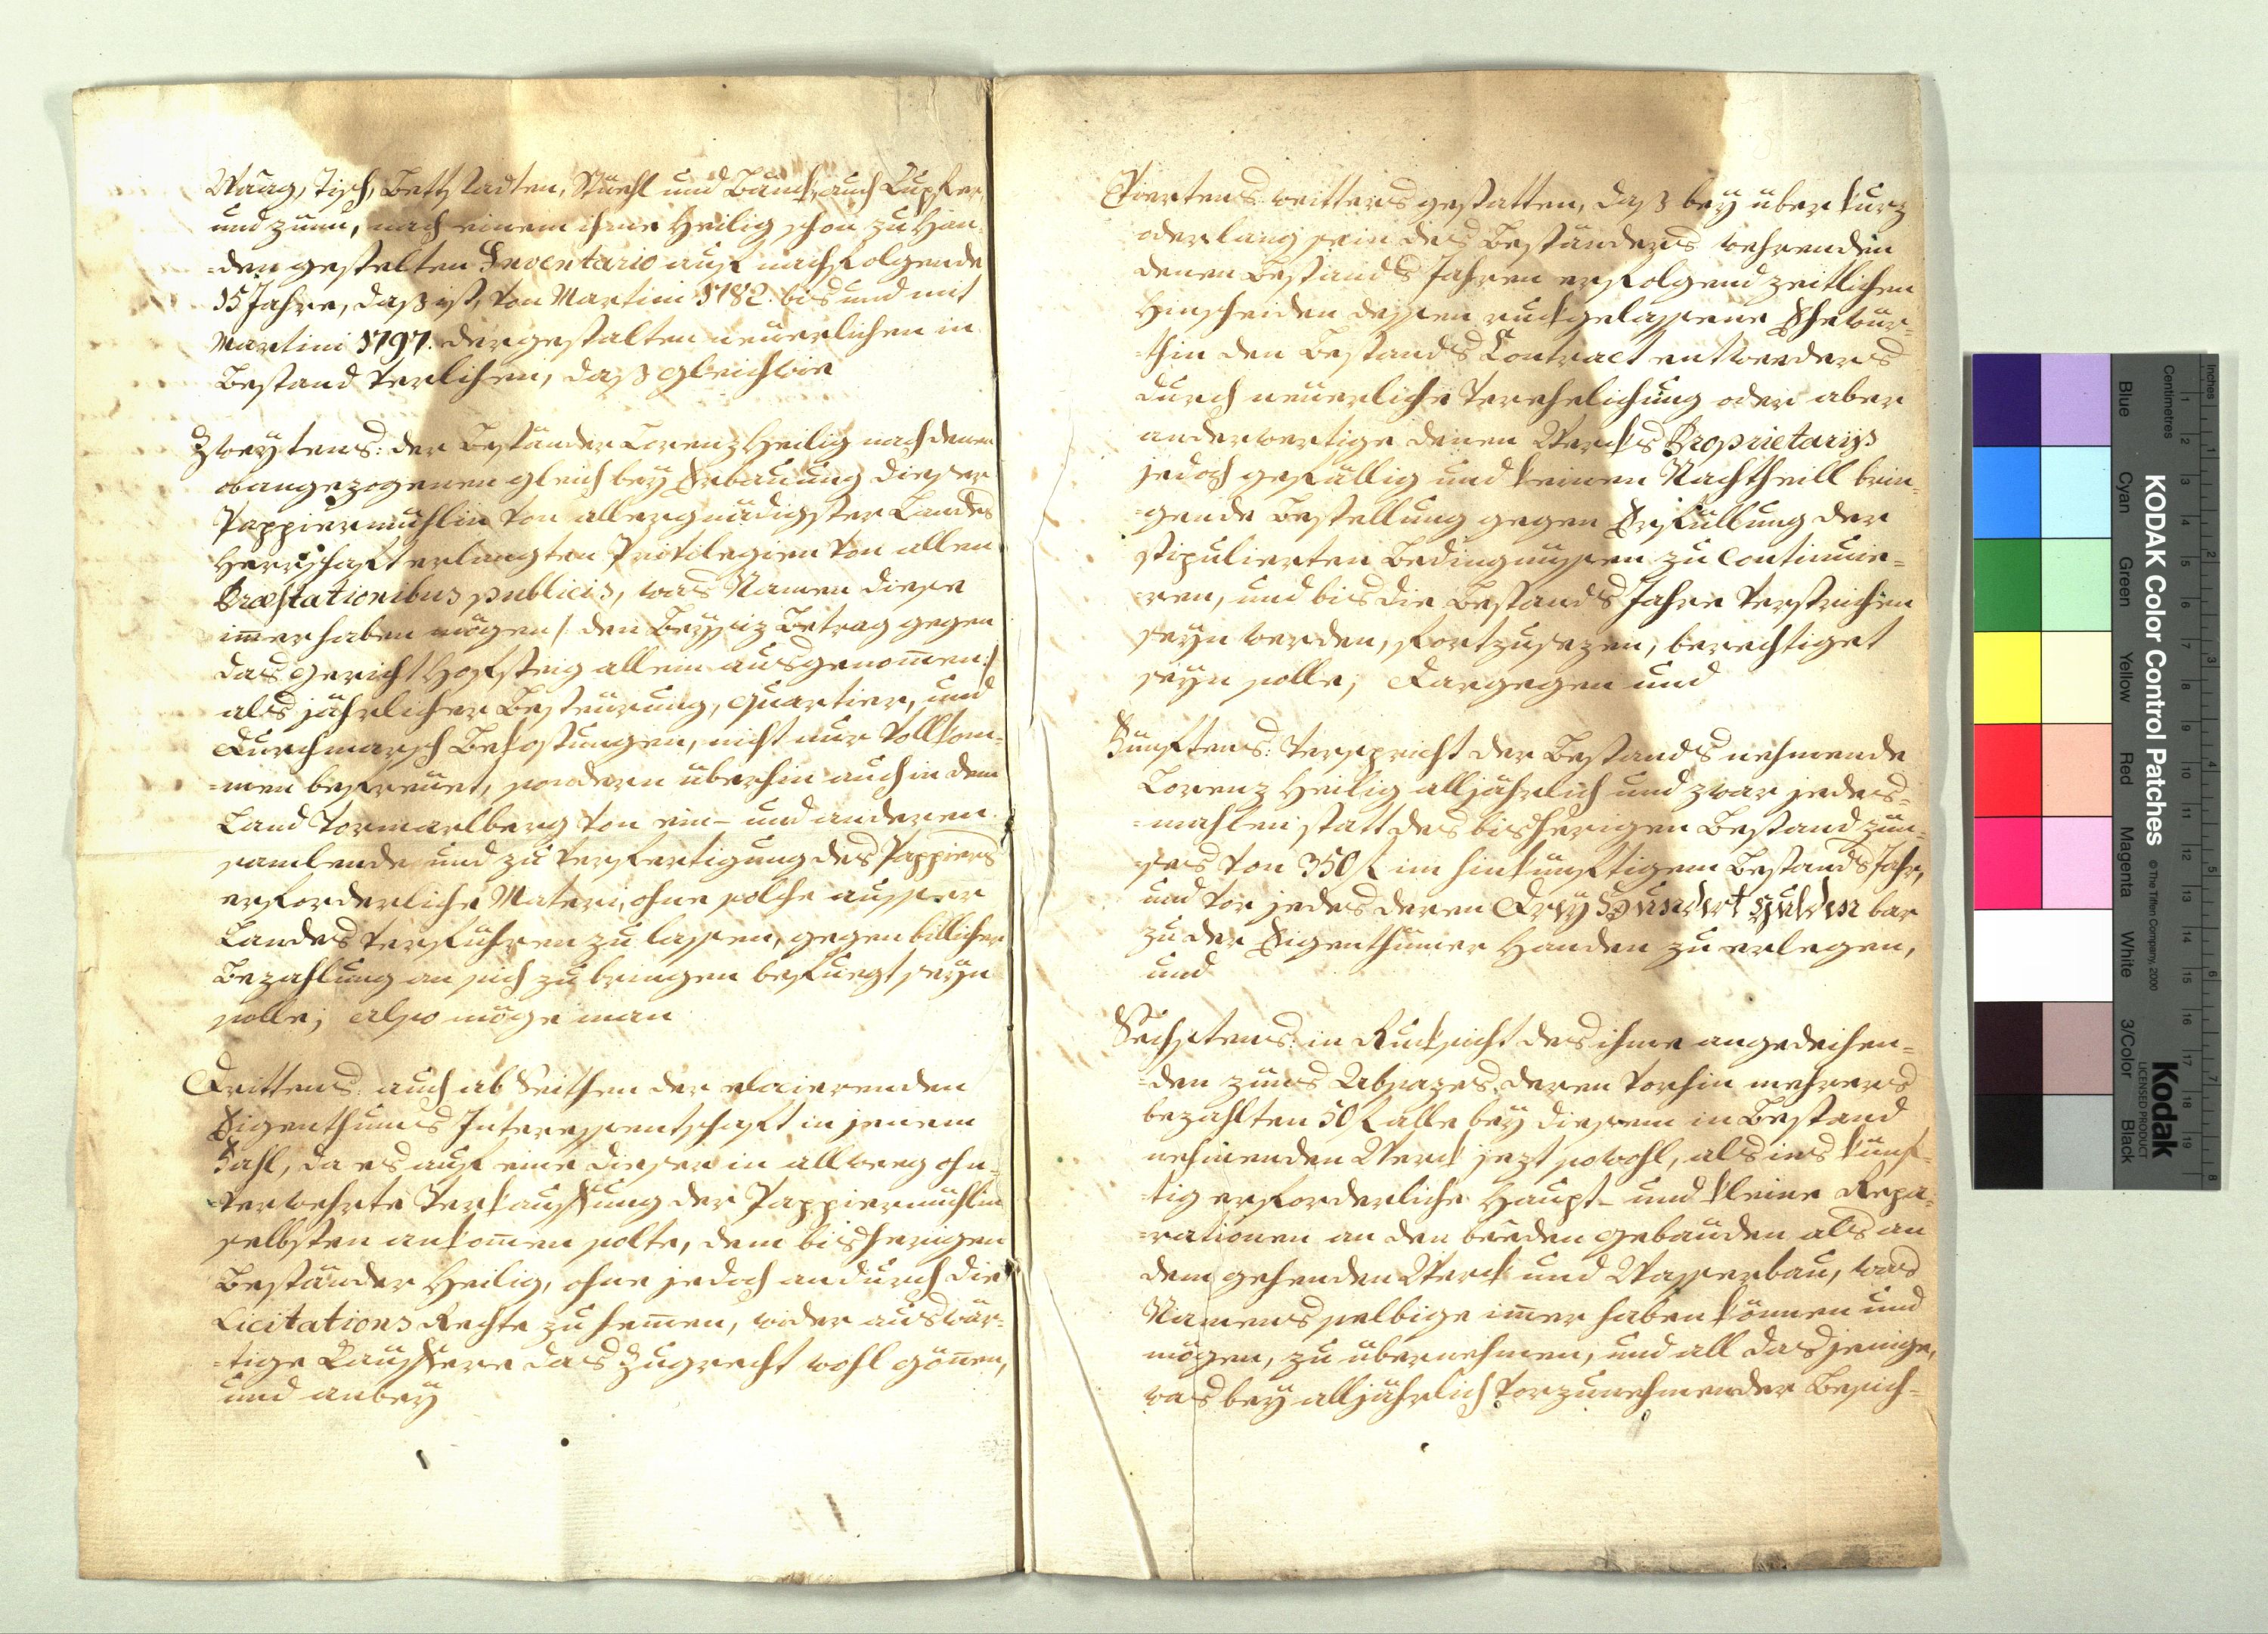 Waag, Tisch, Bettstadten, Stüehl und Bänck, auch Kupfer,
und zünn, nach einem ihme Heilig schon zu Han-
=den gestelten Inventario auf nachfolgende
15 Jahre, daß ist, von Martini 1782. bis und mit
Martini 1797. dergestalten neuerlichen in
Bestand verlichen, daß gleichwie
Zweytens: der Beständer Lorenz Heilig nach denen
obangezogenen gleich bey Erbauung dieser
Pappiermühlin von allergnädigster Landes
Herrschaft erlangten Privilegien von allen
Præstationibus publicis, was Namen diese
im̄er haben mögen /: den Beysiz Betrag gegen
das Gericht Hofsteig allein ausgenom̄en :/
als jährlicher Besteurung, Quartier, und
Durchmarsch Bekostungen, nicht nur vollkom-
=men befreüet, sondern überhin auch in dem
Land Vorarlberg von ein- und anderen
samlende und zu Verfertigung des Pappiers
erforderliche Materi, ohne solche ausser
Landes verführen zu lassen, gegen billicher
Bezahlung an sich zu bringen befuegt seyn
solle; also möge man
Drittens: auch ab Seithen der elocierenden
Eigenthums Interessentschaft in jenem
Fahl, da es auf eine dieser in allweeg ohn-
verwehrte Verkauffung der Pappiermühlin
selbsten ankom̄en solte, dem bisherigen
Beständer Heilig, ohne jedoch andurch die
Licitations Rechte zu hem̄en, wider auswär-
=tige Kauffere das Zugrecht wohl gön̄en,
und anbey
Viertens: weitters gestatten, daß bey über kurz
oder lang sein des Beständers wehrenden
denen Bestands Jahren erfolgend zeitlichen
Hinscheiden dessen ruckgelassene Ehewür-
=thin den Bestands Contract entweeders
durch neuerliche Verehelichung oder aber
anderwertige denen Wercks Proprietarijs
jedoch gefällig und keinen Nachtheill brin-
=gende Bestellung gegen Erfüllung der
stipulierten Bedingnussen zu continuie=
=ren, und bis die Bestands Jahre verstrichen
seyn werden, fortzusezen, berechtiget
seyn solle; Dargegen und
Fünftens: verspricht der Bestands nehmende
Lorenz Heilig alljährlich und zwar jedes=
=mahlen statt des bisherigen Bestand zün-
=ses von 350 f im hinkünftigem Bestands Jahr,
und vor jedes deren Drey Hundert Gulden bar
zu der Eigenthümer Handen zu erlegen,
und
Sechstens: in Rucksicht des ihme angedeihen=
=den züns Absazes deren vorhin mehrers
bezahlten 50 f alle bey diesem in Bestand
nehmenden Werck jezt sowohl, als ins künf-
=tig erforderliche Haupt- und kleine Repa-
=rationen an den beeden Gebäuden als an
dem gehenden Werck und Wasserbau, was
Namens selbige im̄er haben können und
mögen, zu übernehmen, und all dasjenige,
was bey alljährlich vorzunehmender Besich=
KODAK Color Control Patches
© The Tiffen Company, 2000
Kodak
LICENSED PRODUCT
Inches
Centimetres
Blue
Cyan
Green
Yellow
Red
Magenta
White
3/Color
Black